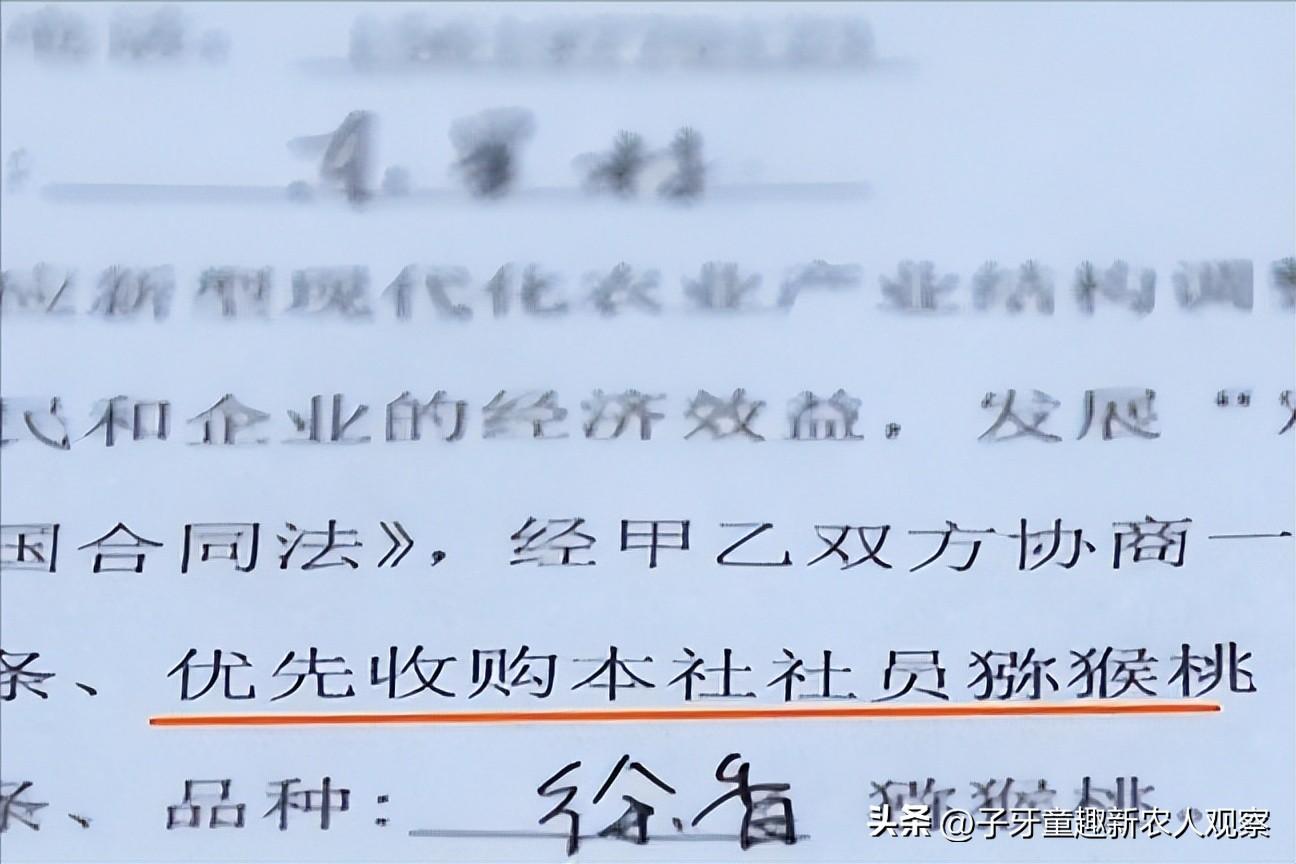 新型现代化农业产业结构调
民和企业的经济效益。发展“
国合同法》，经甲乙双方协商一
条、优先收购本社社员猕猴桃
条、品种：徐香 猕猴桃
头条 @子牙童趣新农人观察